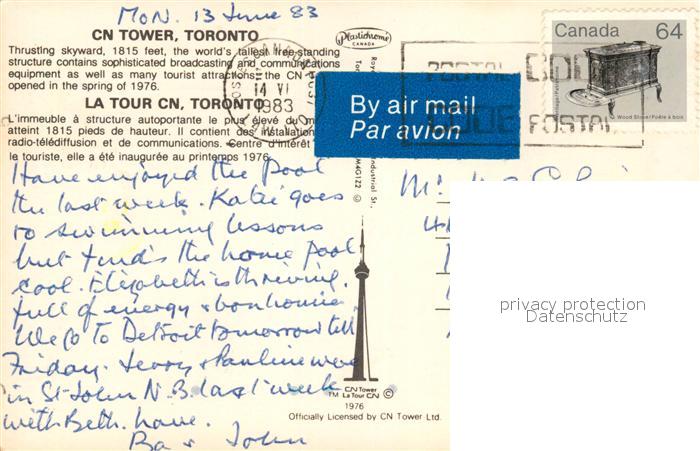 Mon. 13 June 83
CN TOWER, TORONTO
Thrusting skyward, 1815 feet, the world's tallest free-standing
structure contains sophisticated broadcasting and communications
equipment as well as many tourist attractions, the CN
opened in the spring of 1976.
LA TOUR CN, TORONTO
L'immeuble à structure autoportante le plus élevé du
atteint 1815 pieds de hauteur. Il contient des installation
radio-télédiffusion et de communications. Centre d'intérêt
le touriste, elle a été inaugurée au printemps 1976.
Plastichrome
CANADA
14 VI
1983
By air mail
Par avion
Canada 64
Wood Stove/Poêle à bois
POSTAL CODE
CODE POSTAL
Industrial St.,
M4G1Z2 ©
Have enjoyed the pool
the last week. Katie goes
to swimming lessons
but finds the home pool
cool. Elizabeth is thriving,
full of energy & bonhomie.
We go to Detroit tomorrow till
Friday. Jerry & Pauline were
in St John N.B. last week
with Beth. have.
Ba & John
privacy protection
Datenschutz
CN Tower
™ La Tour CN ©
1976
Officially Licensed by CN Tower Ltd.